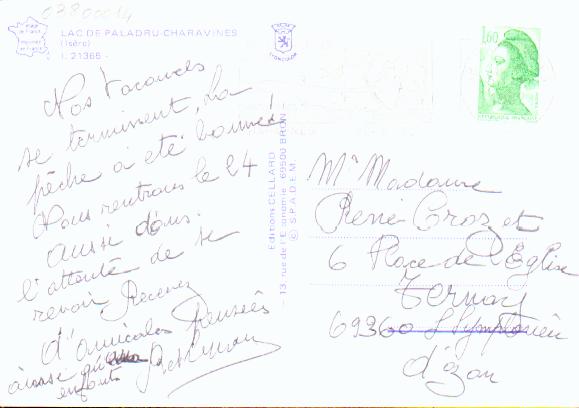 03800014
LAC DE PALADRU-CHARAVINES
(Isère)
I. 21365 -
Nos Vacances
se terminent, La
pêche a été bonne!
Nous rentrons le 24
aussi dans
l'attente de se
revoir Recevez
d'amicales Pensées
enfants
Editions CELLARD
13, rue de l'Economie - 69500 BRON
© S.P.A.D.E.M.
1,60
Mr Madame
René Cros et
6 Place de l'Eglise
Ternay
69360 S Symphorien
d'Ozon